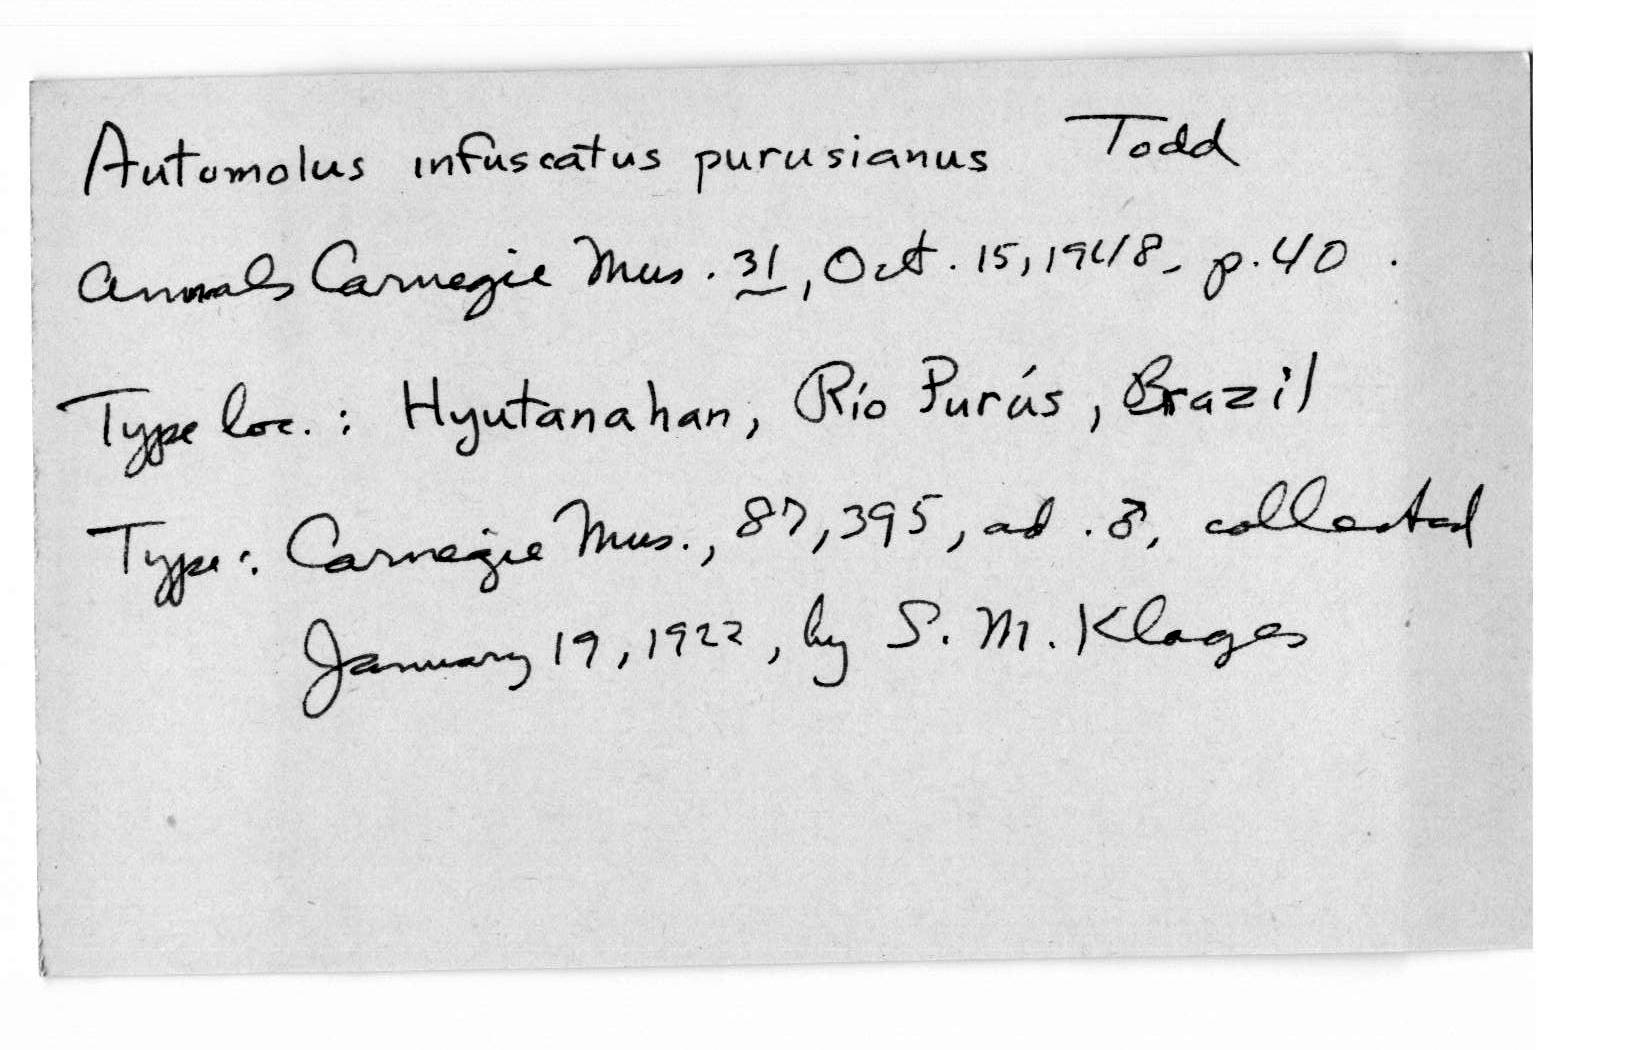 Automolus infuscatus purusianus Todd
Annals Carnegie Mus. 31, Oct. 15, 1948, p. 40.
Type loc.: Hyutanahan, Río Purús, Brazil
Type: Carnegie Mus., 87,395, ad. ♂, collected
January 19, 1922, by S. M. Klages